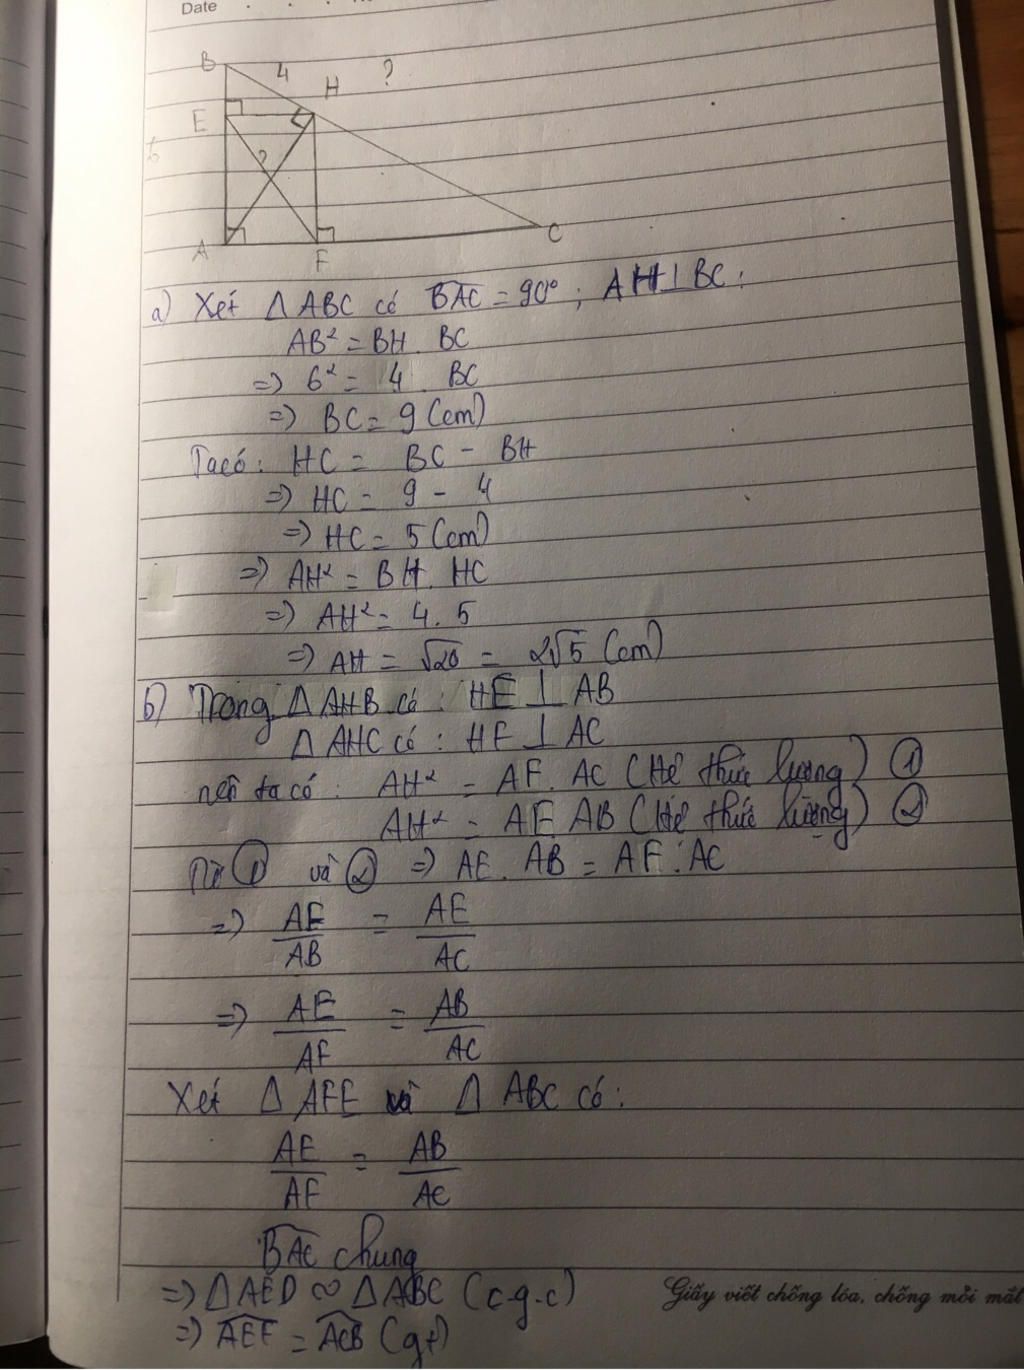 Date
B 4 H ?
E
6 ?
A F C
a) Xét Δ ABC có BAC = 90°; AH ⊥ BC:
AB² = BH . BC
=> 6² = 4 . BC
=> BC = 9 (cm)
Ta có: HC = BC - BH
=> HC = 9 - 4
=> HC = 5 (cm)
=> AH² = BH . HC
=> AH² = 4 . 5
=> AH = √20 = 2√5 (cm)
b) Trong Δ AHB có : HE ⊥ AB
Δ AHC có : HF ⊥ AC
nên ta có : AH² = AF . AC (Hệ thức lượng) ①
AH² = AE AB (Hệ thức lượng) ②
Từ ① và ② => AE . AB = AF . AC
=> AF/AB = AE/AC
=> AE/AF = AB/AC
Xét Δ AFE và Δ ABC có :
AE/AF = AB/AC
BAC chung
=> Δ AED ∽ Δ ABC (c-g-c)
=> AEF = ACB (gt)
Giấy viết chống lóa, chống mỏi mắt